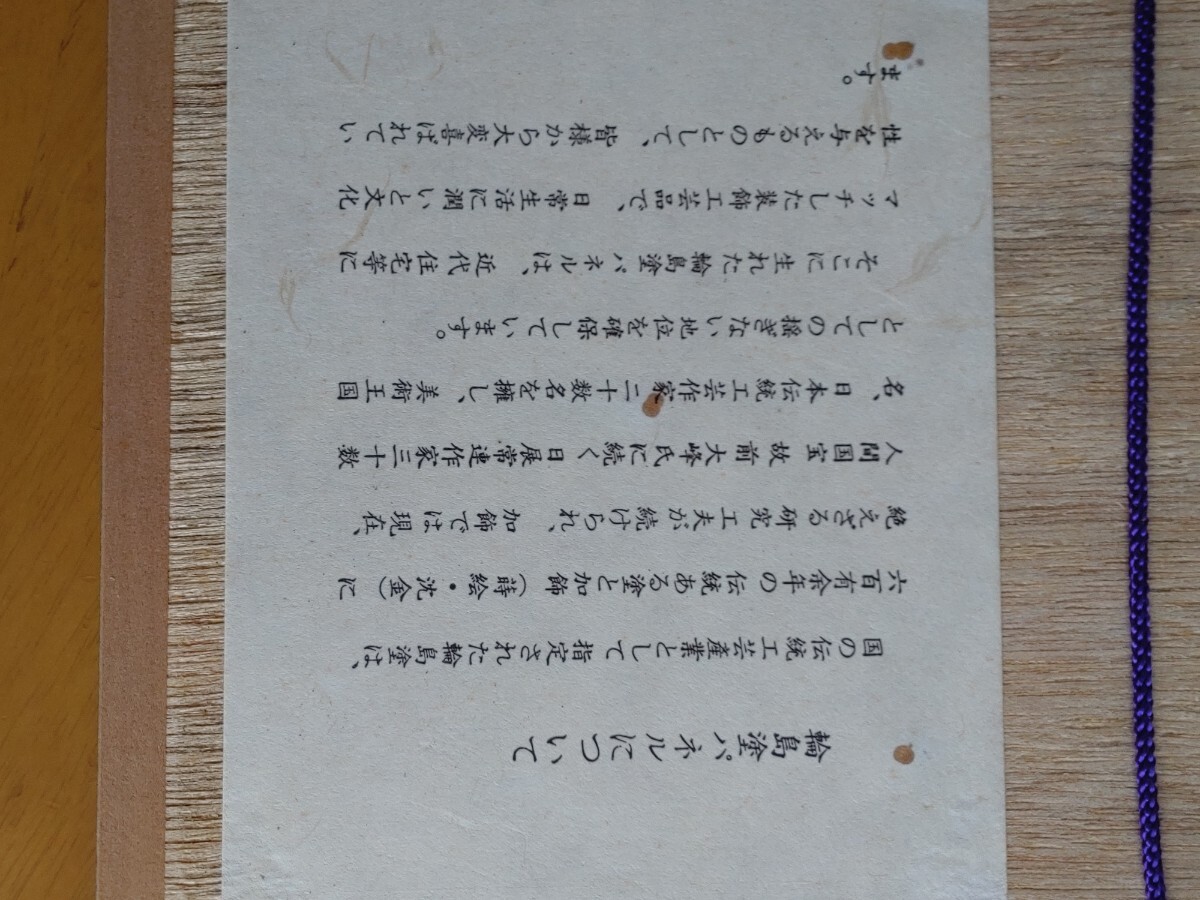 輪島塗パネルについて
国の伝統工芸産業として指定された輪島塗は、
六百有余年の伝統ある塗と加飾(蒔絵・沈金)に
絶えざる研究工夫が続けられ、加飾では現在、
人間国宝故前大峰氏に続く日展常連作家三十数
名、日本伝統工芸作家二十数名を擁し、美術王国
としての揺ぎない地位を確保しています。
そこに生れた輪島塗パネルは、近代住宅等に
マッチした装飾工芸品で、日常生活に潤いと文化
性を与えるものとして、皆様から大変喜ばれてい
ます。